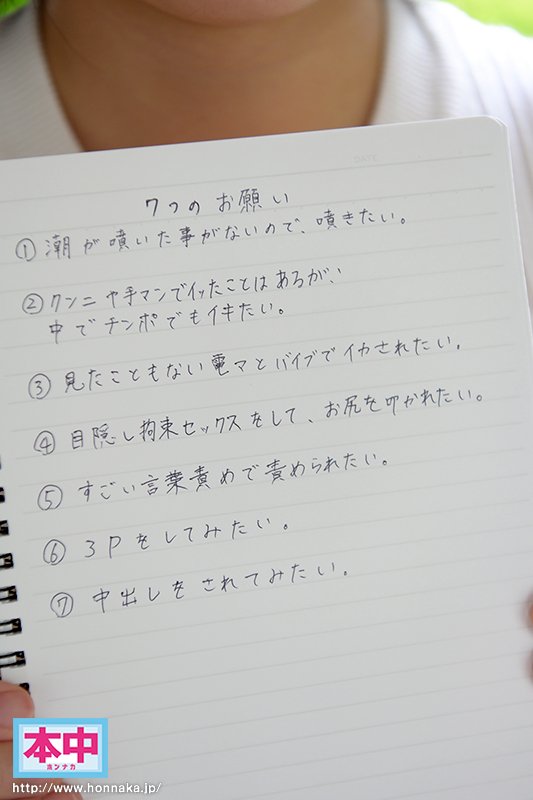 DATE
7つのお願い
①潮が噴いた事がないので、噴きたい。
②クンニや手マンでイッたことはあるが、
中でチンポでもイキたい。
③見たこともない電マとバイブでイカされたい。
④目隠し拘束セックスをして、お尻を叩かれたい。
⑤すごい言葉責めで責められたい。
⑥3Pをしてみたい。
⑦中出しをされてみたい。
本中
ホンナカ
http://www.honnaka.jp/